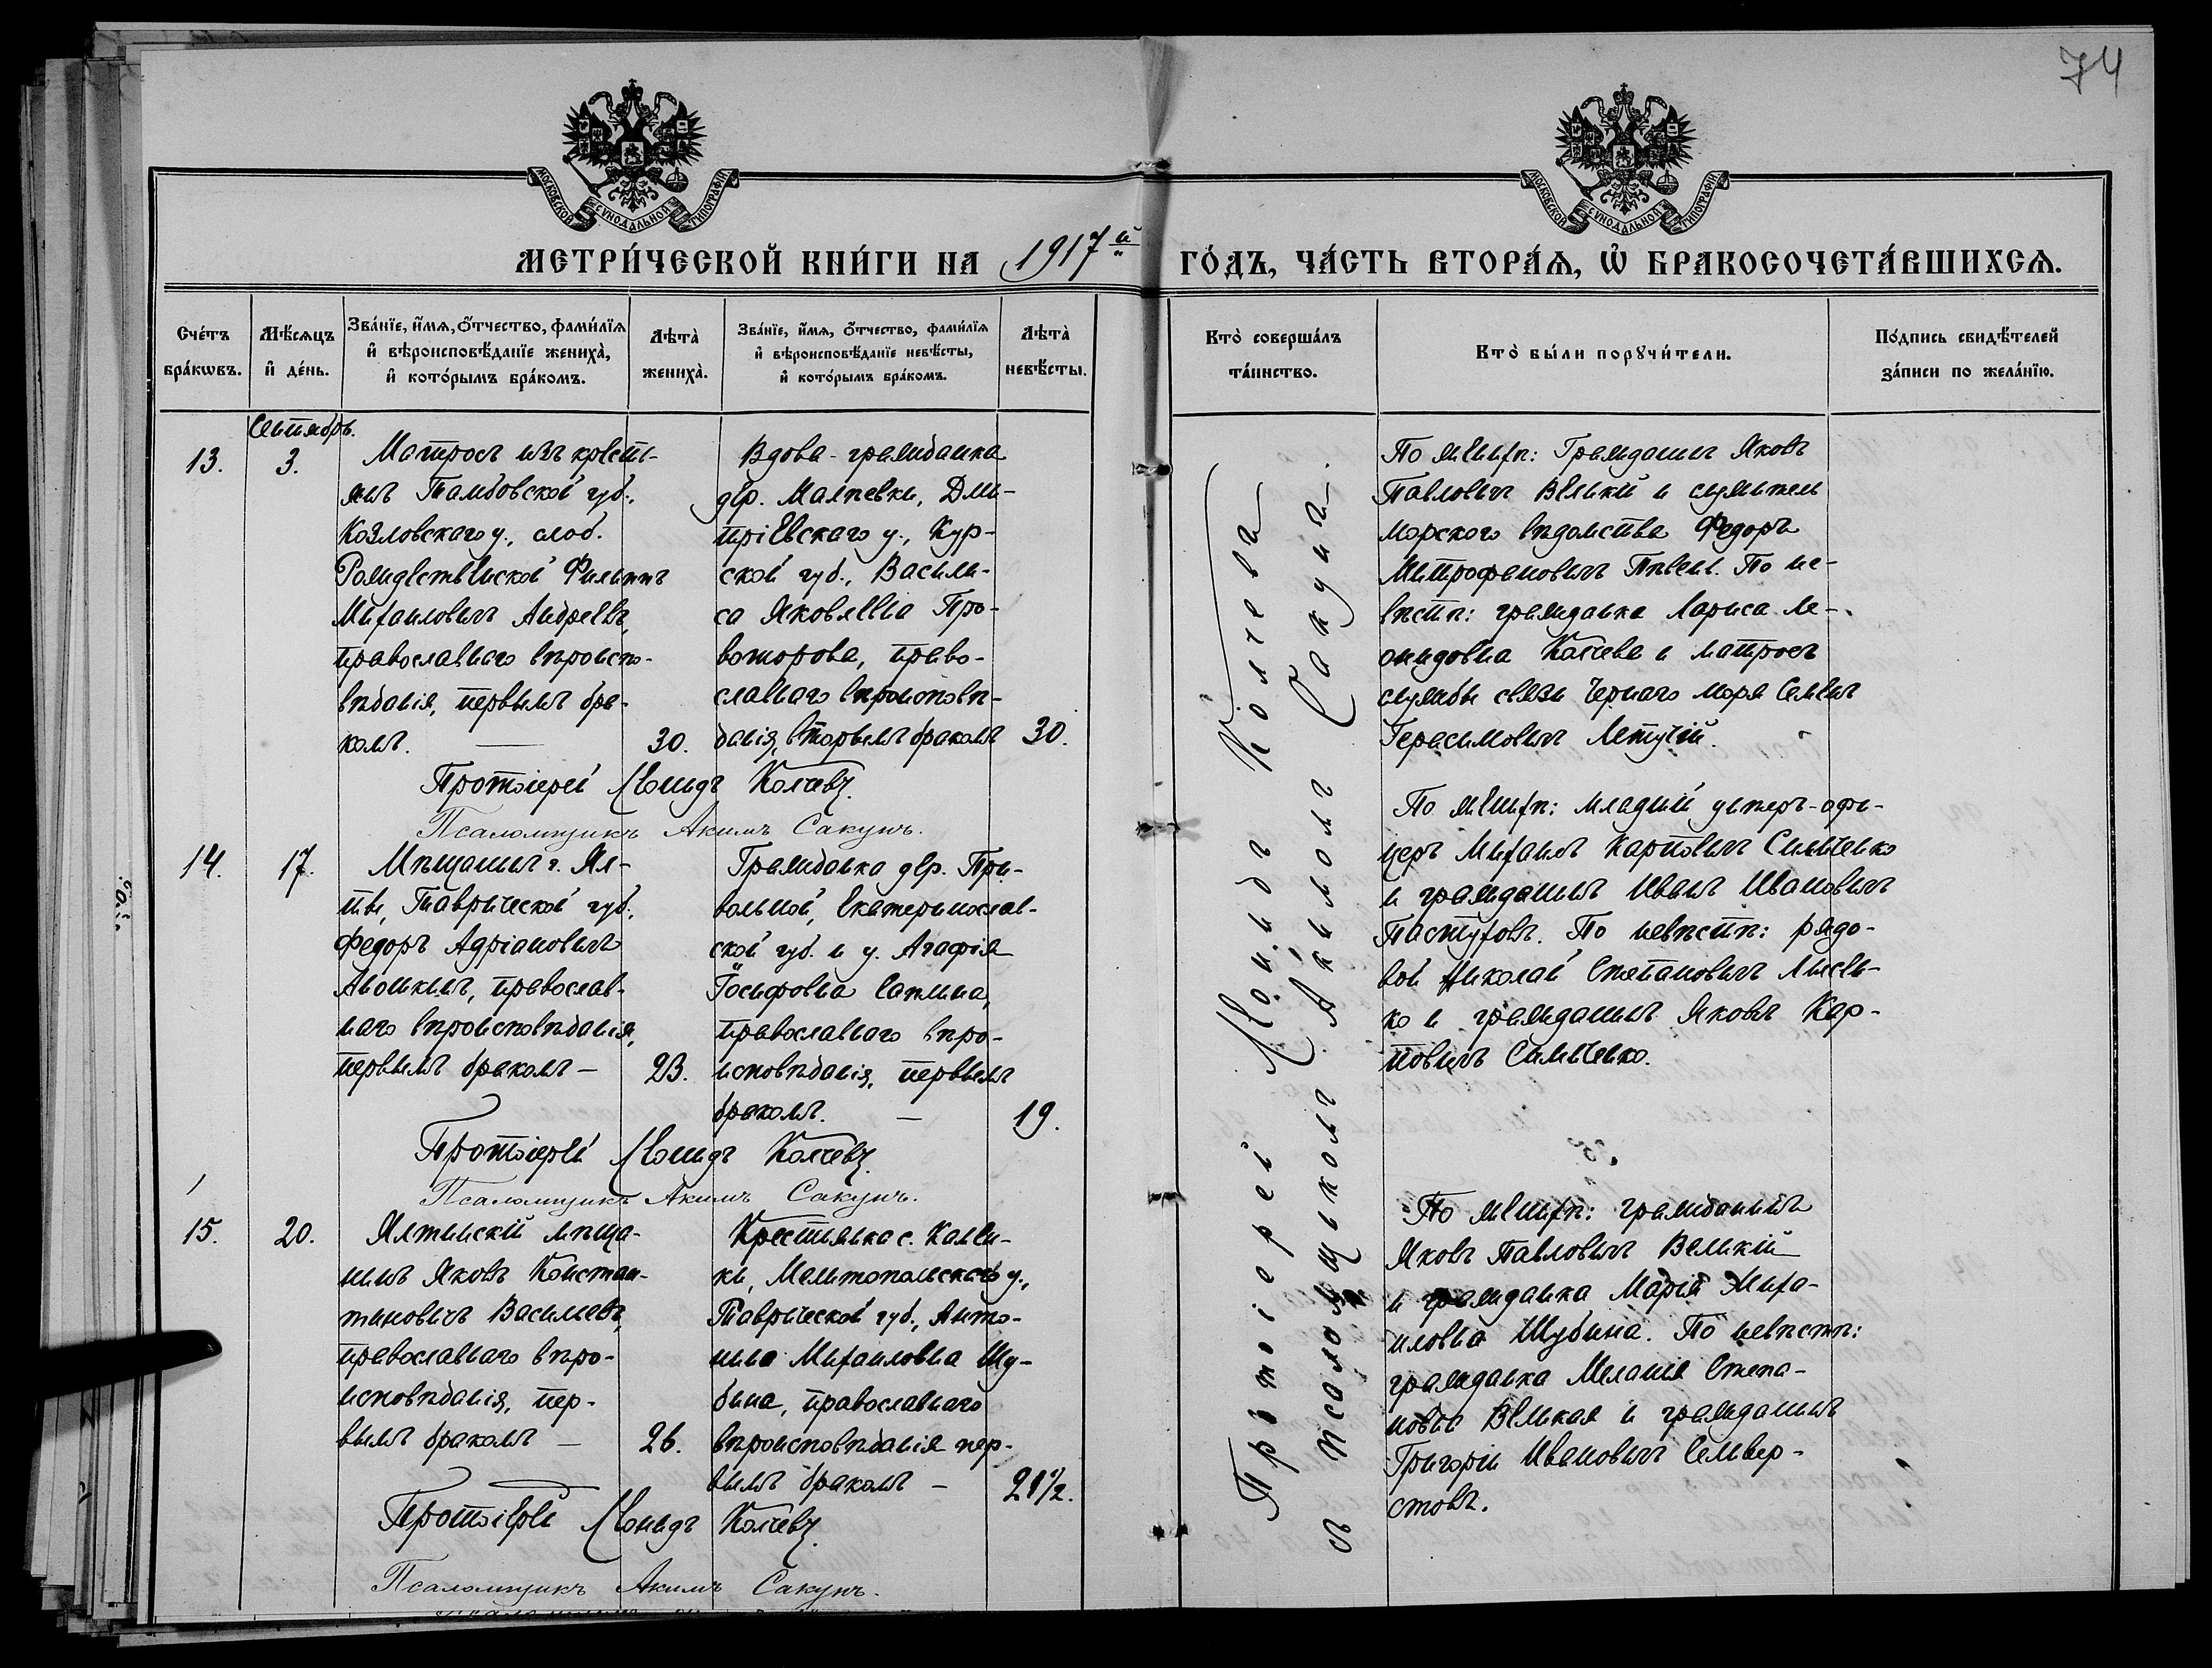 74
МОСКОВСКОЙ СѴНОДАЛЬНОЙ ТИПОГРАФІИ
МОСКОВСКОЙ СѴНОДАЛЬНОЙ ТИПОГРАФІИ
МЕТРИ́ЧЕСКОЙ КНИ́ГИ НА 1917й ГО́ДЪ, ЧА́СТЬ ВТОРА́Ѧ, Ѡ҆ БРАКОСОЧЕТА́ВШИХСѦ.
Счéтъ бра́кωвъ.
Мѣ́сѧцъ и҆ де́нь.
Зва́нїе, и҆́мѧ, ѻ҆́тчество, фами́лїѧ
и҆ вѣроисповѣ́данїе жениха̀,
и҆ кото́рымъ бра́комъ.
Лѣта̀ жениха̀.
Зва́нїе, и҆́мѧ, ѻ҆́тчество, фами́лїѧ
и҆ вѣроисповѣ́данїе невѣ́сты,
и҆ кото́рымъ бра́комъ.
Лѣта̀ невѣ́сты.
Кто̀ соверша́лъ та́инство.
Кто̀ бы́ли порꙋчи́тели.
По́дпись свидѣ́телей за́писи по жела́нїю.
Сентябрь.
13.
3.
Матросъ изъ кресть-
янъ Тамбовской губ.,
Козловскаго у., слоб.
Рождественской Филиппъ
Михаиловичъ Андреевъ,
православнаго вѣроиспо-
вѣданія, первымъ бра-
комъ. —
30.
Вдова-гражданка
дер. Малѣевки, Дми-
тріевскаго у., Кур-
ской губ., Васили-
са Яковлевна Про-
воторова, право-
славнаго вѣроисповѣ-
данія, вторымъ бракомъ
30.
По женихѣ: Гражданинъ Яковъ
Павловичъ Великій и служитель
морского вѣдомства Федоръ
Митрофановичъ Пивень. По не-
вѣстѣ: гражданка Лариса Ле-
онидовна Колчева и матросъ
службы связи Чернаго моря Семенъ
Герасимовичъ Летучій.
Протоіерей Леонидъ Колчевъ.
Псаломщикъ Акимъ Сакунъ.
14.
17.
Мѣщанинъ г. Ял-
ты, Таврической губ.,
Федоръ Адріановичъ
Аношкинъ, православ-
наго вѣроисповѣданія,
первымъ бракомъ —
23.
Гражданка дер. При-
вольной, Екатеринослав-
ской губ. и у. Агафія
Іосифовна Сапина,
православнаго вѣро-
исповѣданія, первымъ
бракомъ. —
19.
По женихѣ: младшій унтеръ-офи-
церъ Михаилъ Карповичъ Симченко
и гражданинъ Иванъ Ивановичъ
Пастуховъ. По невѣстѣ: рядо-
вой Николай Степановичъ Лысен-
ко и гражданинъ Яковъ Кар-
повичъ Симченко.
Протоіерей Леонидъ Колчевъ.
Псаломщикъ Акимъ Сакунъ.
15.
20.
Ялтинскій мѣща-
нинъ Яковъ Констан-
тиновичъ Васильевъ,
православнаго вѣро-
исповѣданія, пер-
вымъ бракомъ —
26.
Крестьянка с. Камен-
ки, Мелитопольскаго у.,
Таврической губ., Анто-
нина Михаиловна Шу-
бина, православнаго
вѣроисповѣданія пер-
вымъ бракомъ —
21½.
По женихѣ: гражданинъ
Яковъ Павловичъ Великій
и гражданка Марія Миха-
иловна Шубина. По невѣстѣ:
гражданка Меланія Степа-
новна Великая и гражданинъ
Григорій Ивановичъ Селивер-
стовъ.
Протоіерей Леонидъ Колчевъ.
Псаломщикъ Акимъ Сакунъ.
Протоіерей Леонидъ Колчевъ
съ псаломщикомъ Акимомъ Сакуномъ.